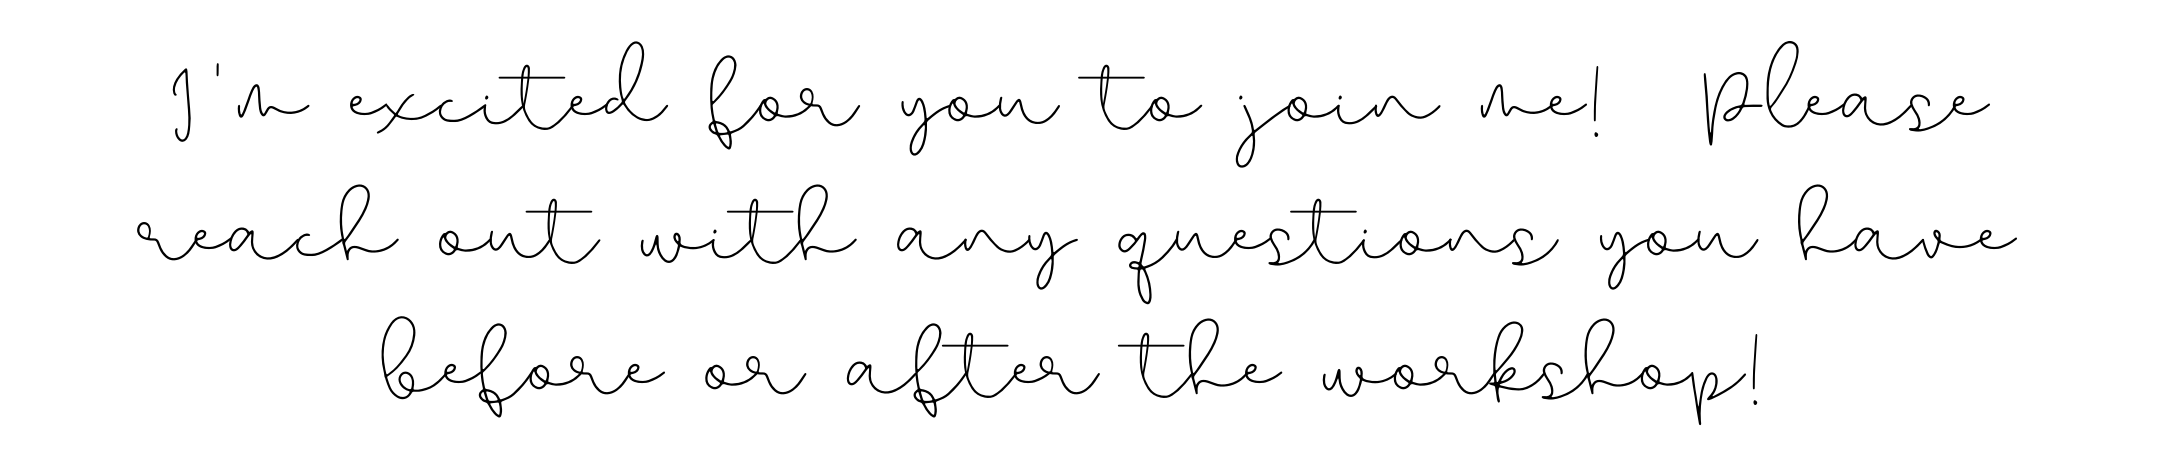 I'm excited for you to join me! Please
reach out with any questions you have
before or after the workshop!